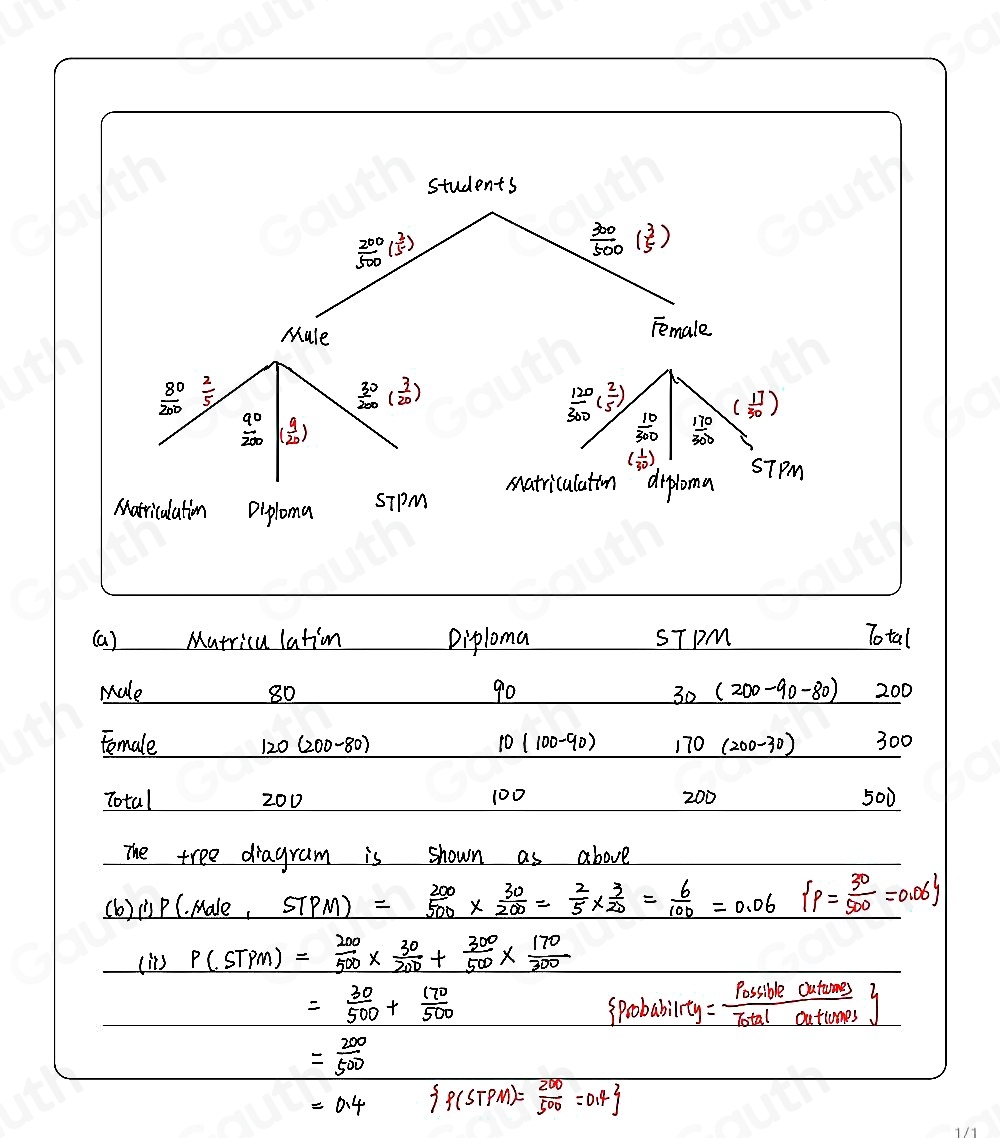 Students
200/500 (2/5)
300/500 (3/5)
Male
Female
80/200 2/5
90/200 (9/20)
30/200 (3/20)
120/300 (2/5)
10/300 (1/30)
170/300 (17/30)
Matriculation Diploma STPM
Matriculation diploma STPM
(a) Matriculation Diploma STPM Total
Male 80 90 30 (200-90-80) 200
Female 120 (200-80) 10 (100-90) 170 (200-30) 300
Total 200 100 200 500
The tree diagram is shown as above
(b) (i) P(.Male, STPM) = 200/500 × 30/200 = 2/5 × 3/20 = 6/100 = 0.06 {P = 30/500 = 0.06}
(ii) P(.STPM) = 200/500 × 30/200 + 300/500 × 170/300
= 30/500 + 170/500
{Probability = Possible Outcomes/Total Outcomes}
= 200/500
= 0.4 {P(STPM) = 200/500 = 0.4}
1/1
Gauth